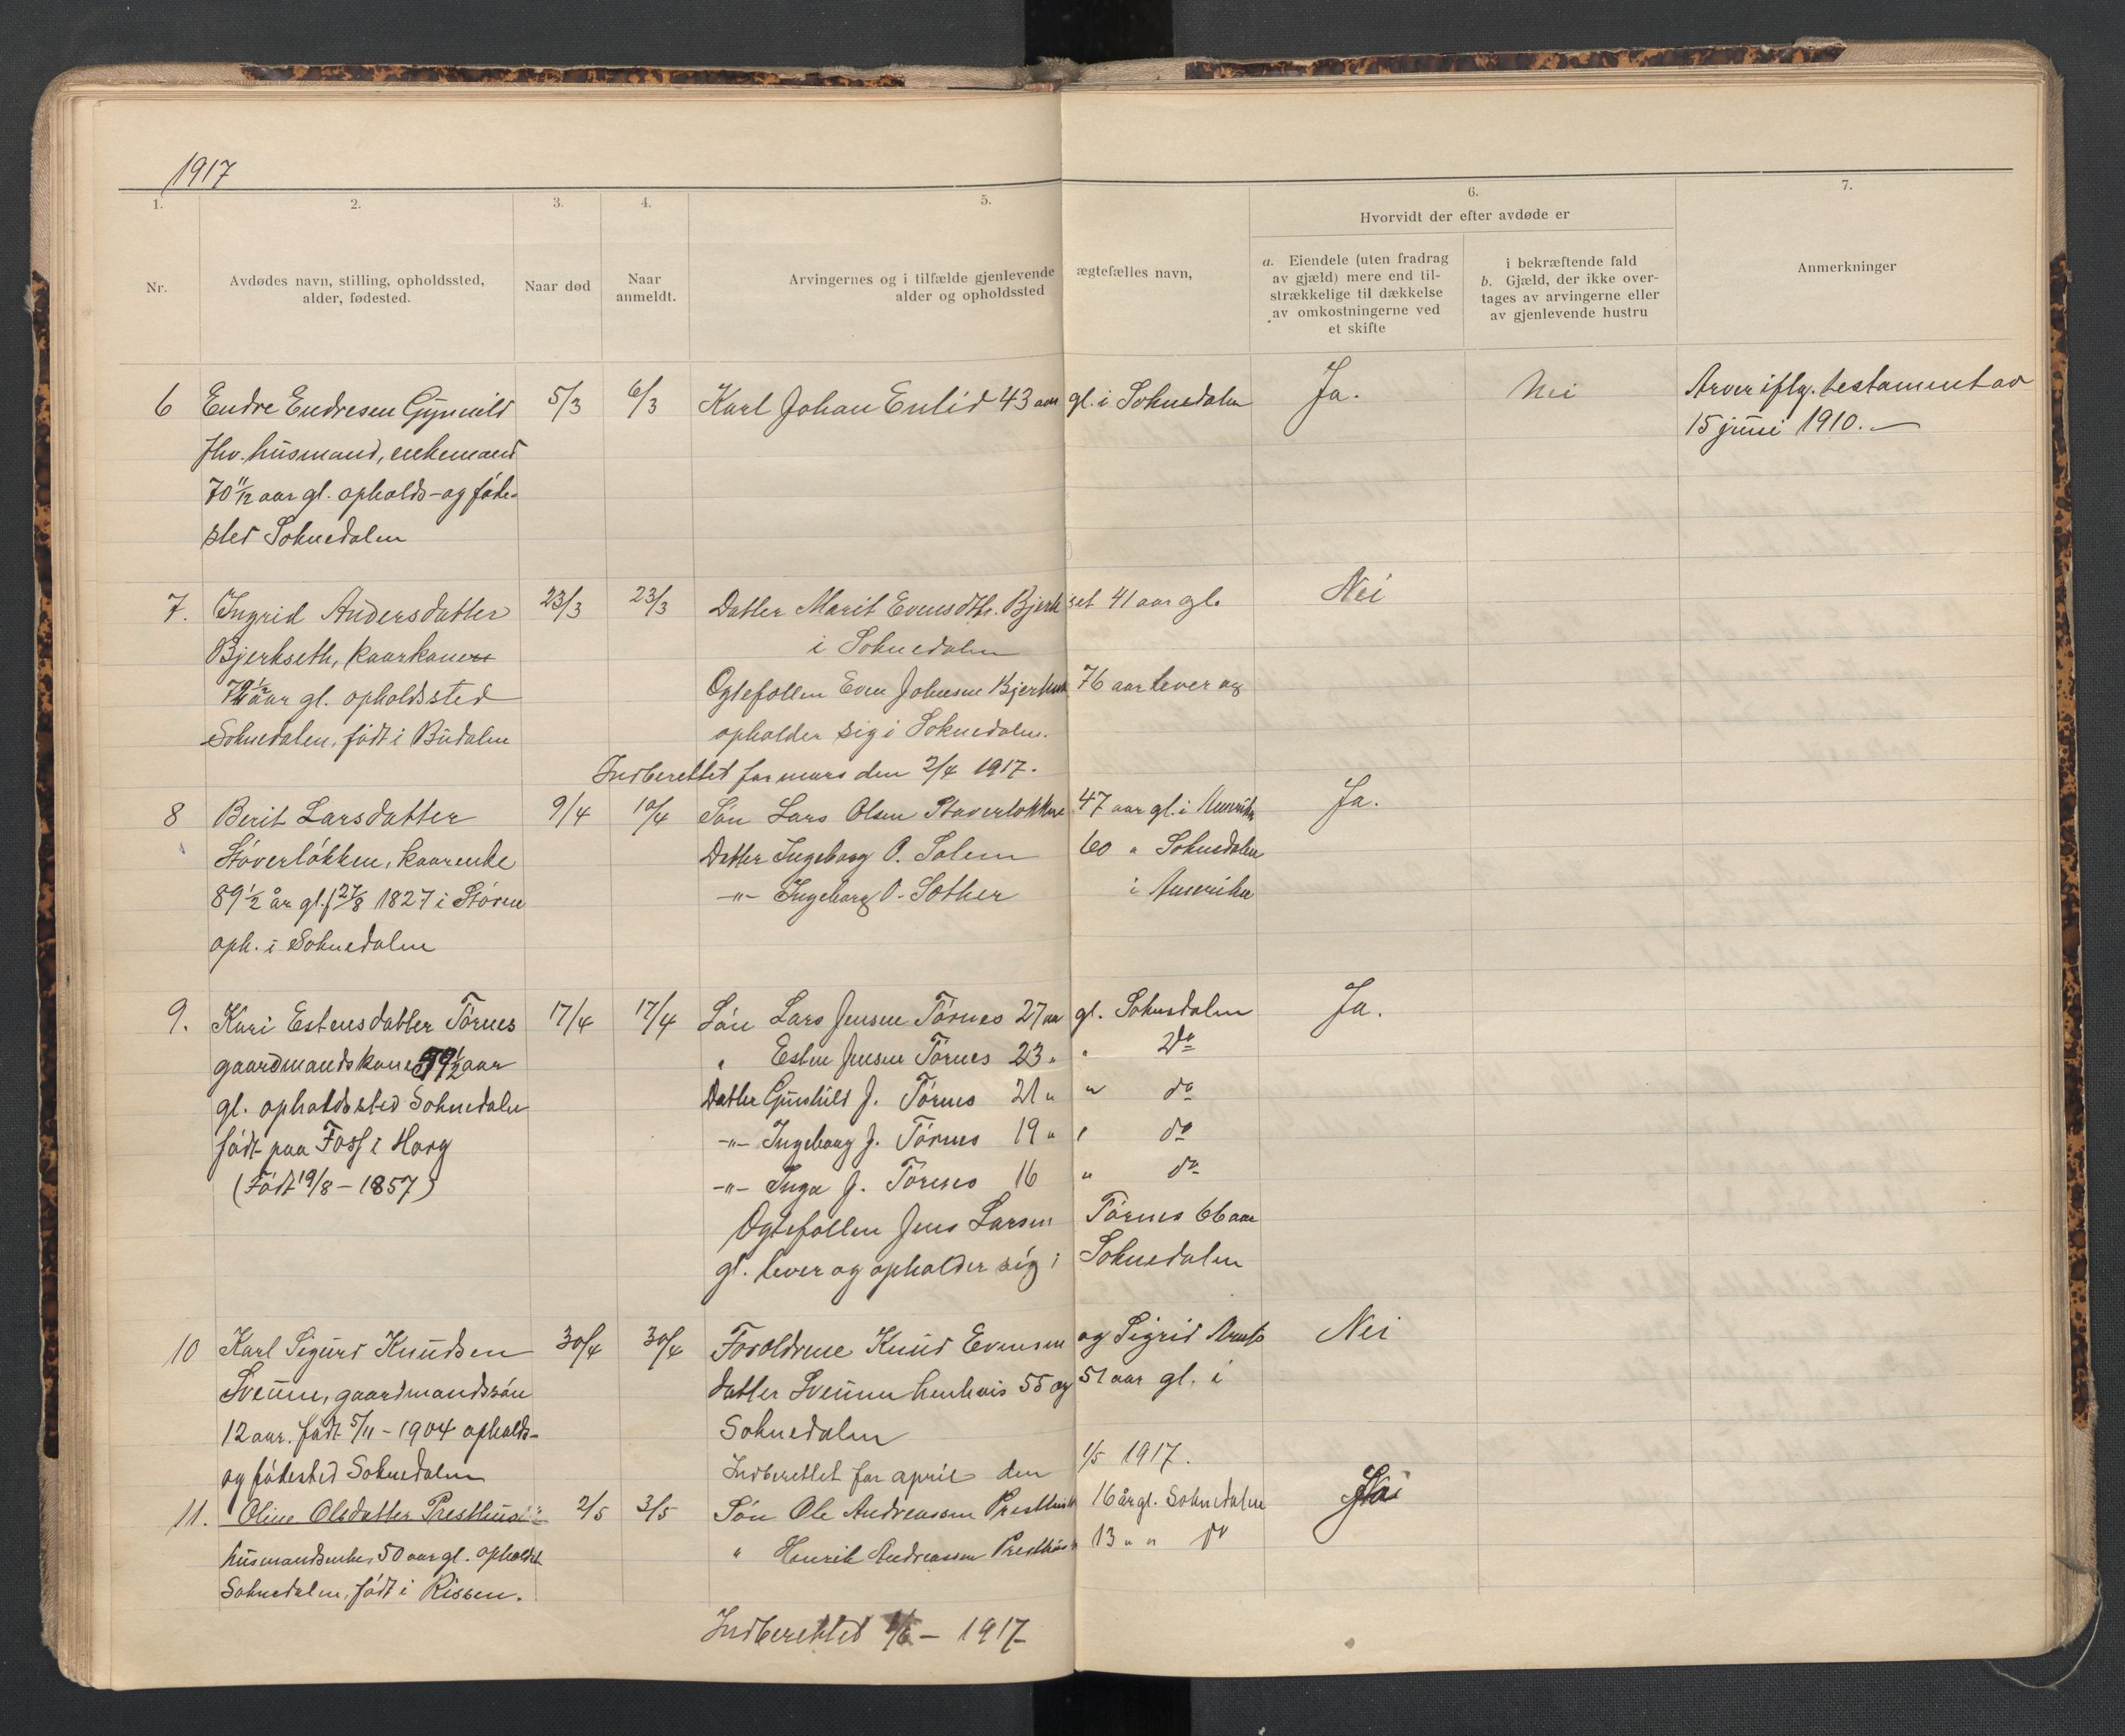 1917
1. 2. 3. 4. 5. 6. 7.
Hvorvidt der efter avdøde er
Nr.
Avdødes navn, stilling, opholdssted,
alder, fødested.
Naar død
Naar
anmeldt.
Arvingernes og i tilfælde gjenlevende ægtefælles navn,
alder og opholdssted
a. Eiendele (uten fradrag
av gjæld) mere end til-
strækkelige til dækkelse
av omkostningerne ved
et skifte
i bekræftende fald
b. Gjæld, der ikke over-
tages av arvingerne eller
av gjenlevende hustru
Anmerkninger
6 Endre Endresen Gynnild 5/3 6/3 Karl Johan Enlid 43 aar gl. i Soknedalen Ja. Nei Arver iflg. testament av
fhv. husmand, enkemand 15 juni 1910. —
70 11/12 aar gl. opholds- og føde-
sted Soknedalen
7. Ingrid Andersdatter 23/3 23/3 Datter Marit Evensdtr. Bjerkset 41 aar gl. Nei
Bjerkseth, kaarkone i Soknedalen
aar gl. opholdssted Ægtefællen Even Johnsen 76 aar lever og
Soknedalen, født i Budalen opholder sig i Soknedalen.
Indberettet for mars den 2/4 1917.
8 Berit Larsdatter 9/4 10/4 Søn Lars Olsen Støverløkken 47 aar gl. i Amerika Ja.
Støverløkken, kaarenke Datter Ingeborg O. Solem 60 " Soknedalen
89 1/2 år gl. f 27/8 1827 i Støren -"- Ingeborg O. Sæther i Amerika
oph. i Soknedalen
9. Kari Estensdatter Tørnes 17/4 17/4 Søn Lars Jensen Tørnes 27 aar gl. Soknedalen Ja.
gaardmandskone 59 1/2 aar " Esten Jensen Tørnes 23 " " Do
gl. opholdssted Soknedalen Datter Gunhild J. Tørnes 21 " " do
født paa Foss i Horg -"- Ingeborg J. Tørnes 19 " " do
(Født 19/8 – 1857) -"- Inga J. Tørnes 16 " do
Ægtefællen Jens Larsen Tørnes 66 aar
gl. lever og opholder sig i Soknedalen
10 Karl Sigurd Knudsen 30/4 30/4 Forældrene Knud Evensen og Sigrid Arnts Nei
Sveinun, gaardmandssøn datter Sveinun henhvis 55 og 51 aar gl. i
12 aar. født 5/11 – 1904 opholds- Soknedalen
og fødested Soknedalen Indberettet for april den 1/5 1917.
11. Oline Olsdatter Presthus 2/5 3/5 Søn Ole Andreassen Presthus 16 år gl. Soknedalen
husmandsenke, 50 aar gl. opholdst. " Henrik Andreassen Presthus 13 " " do
Soknedalen, født i Rissen.
Indberettet 1/6 – 1917